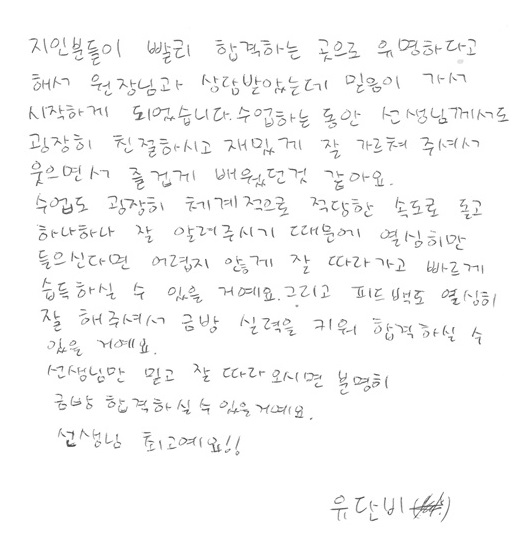 지인분들이 빨리 합격하는 곳으로 유명하다고
해서 원장님과 상담받았는데 믿음이 가서
시작하게 되었습니다.수업하는 동안 선생님께서도
굉장히 친절하시고 재밌게 잘 가르쳐 주셔서
웃으면서 즐겁게 배웠던것 같아요.
수업도 굉장히 체계적으로 적당한 속도로 돌고
하나하나 잘 알려주시기 때문에 열심히만
들으신다면 어렵지 않게 잘 따라가고 빠르게
습득하실 수 있을 거예요.그리고 피드백도 열심히
잘 해주셔서 금방 실력을 키워 합격하실 수
있을 거예요.
선생님만 믿고 잘 따라오시면 분명히
금방 합격하실 수 있을거예요.
선생님 최고예요!!
유단비